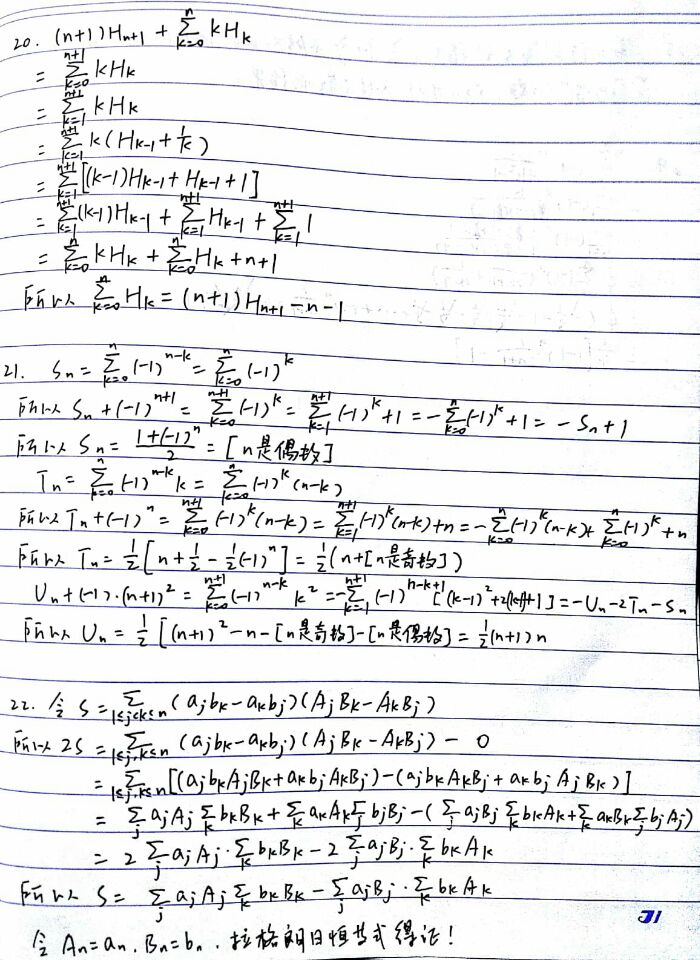 20. (n+1)Hₙ₊₁ + ∑_{k=0}^{n} kHₖ
= ∑_{k=0}^{n+1} kHₖ
= ∑_{k=1}^{n+1} kHₖ
= ∑_{k=1}^{n+1} k(Hₖ₋₁ + 1/k)
= ∑_{k=1}^{n+1} [(k-1)Hₖ₋₁ + Hₖ₋₁ + 1]
= ∑_{k=1}^{n+1} (k-1)Hₖ₋₁ + ∑_{k=1}^{n+1} Hₖ₋₁ + ∑_{k=1}^{n+1} 1
= ∑_{k=0}^{n} kHₖ + ∑_{k=0}^{n} Hₖ + n+1
所以 ∑_{k=0}^{n} Hₖ = (n+1)Hₙ₊₁ - n - 1
21. Sₙ = ∑_{k=0}^{n} (-1)^{n-k} = ∑_{k=0}^{n} (-1)^k
所以 Sₙ + (-1)^{n+1} = ∑_{k=0}^{n+1} (-1)^k = ∑_{k=1}^{n+1} (-1)^k + 1 = -∑_{k=0}^{n} (-1)^k + 1 = -Sₙ + 1
所以 Sₙ = (1+(-1)^n)/2 = [n是偶数]
Tₙ = ∑_{k=0}^{n} (-1)^{n-k} k = ∑_{k=0}^{n} (-1)^k (n-k)
所以 Tₙ + (-1)^n = ∑_{k=0}^{n+1} (-1)^k (n-k) = ∑_{k=1}^{n+1} (-1)^k (n-k) + n = -∑_{k=0}^{n} (-1)^k (n-k) + ∑_{k=0}^{n} (-1)^k + n
所以 Tₙ = 1/2 [n + 1/2 - 1/2(-1)^n] = 1/2 (n + [n是奇数])
Uₙ + (-1)·(n+1)² = ∑_{k=0}^{n+1} (-1)^{n-k} k² = -∑_{k=1}^{n+1} (-1)^{n-k+1} [(k-1)² + 2(k-1) + 1] = -Uₙ - 2Tₙ - Sₙ
所以 Uₙ = 1/2 [(n+1)² - n - [n是奇数] - [n是偶数] = 1/2 (n+1)n
22. 令 S = ∑_{1≤j<k≤n} (aⱼbₖ - aₖbⱼ)(AⱼBₖ - AₖBⱼ)
所以 2S = ∑_{1≤j,k≤n} (aⱼbₖ - aₖbⱼ)(AⱼBₖ - AₖBⱼ) - 0
= ∑_{1≤j,k≤n} [(aⱼbₖAⱼBₖ + aₖbⱼAₖBⱼ) - (aⱼbₖAₖBⱼ + aₖbⱼAⱼBₖ)]
= ∑ⱼ aⱼAⱼ ∑ₖ bₖBₖ + ∑ₖ aₖAₖ ∑ⱼ bⱼBⱼ - (∑ⱼ aⱼBⱼ ∑ₖ bₖAₖ + ∑ₖ aₖBₖ ∑ⱼ bⱼAⱼ)
= 2 ∑ⱼ aⱼAⱼ · ∑ₖ bₖBₖ - 2 ∑ⱼ aⱼBⱼ · ∑ₖ bₖAₖ
所以 S = ∑ⱼ aⱼAⱼ ∑ₖ bₖBₖ - ∑ⱼ aⱼBⱼ · ∑ₖ bₖAₖ
令 Aₙ = aₙ, Bₙ = bₙ, 拉格朗日恒等式得证!